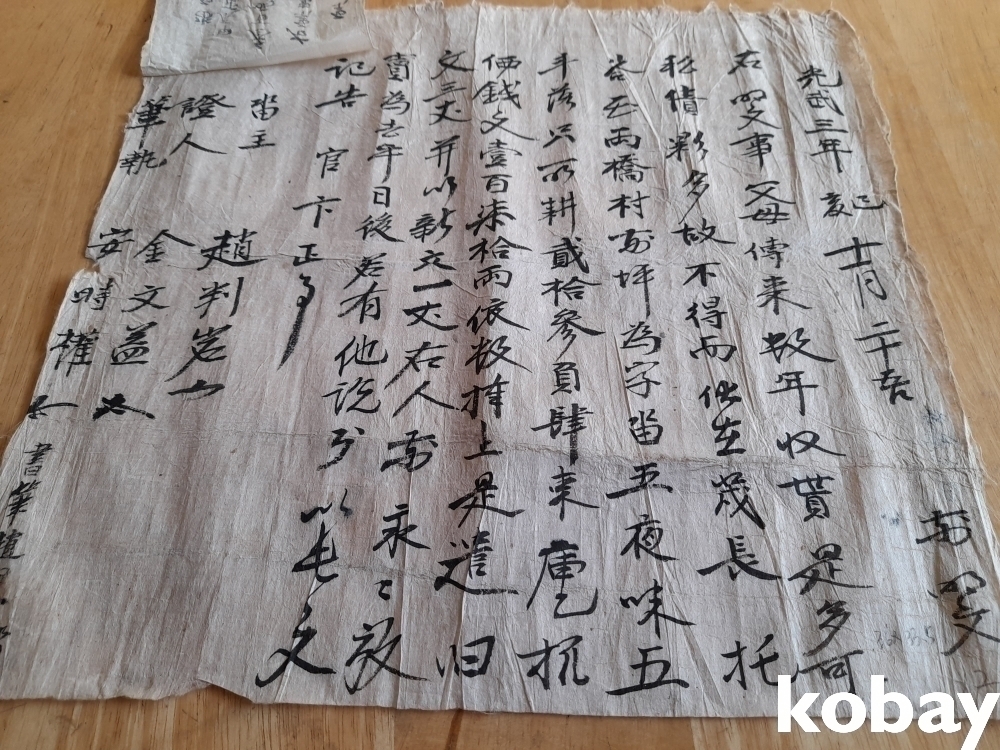 光武三年己亥十一月二十五日 前明文
右明文事父母傳來數年收貰是多可
私債夥多故不得而 長托
谷面雨橋村前坪為字畓五夜味五
斗落只所耕貳拾參負肆束庫乙折
価錢文壹百柒拾兩依數捧上是遣旧
文三丈并以新文一丈右人前永永放
賣為去乎日後若有他說則以此文
記告官卞正事
畓主 趙判岩
證人 金文益
筆執 安時權
kobay